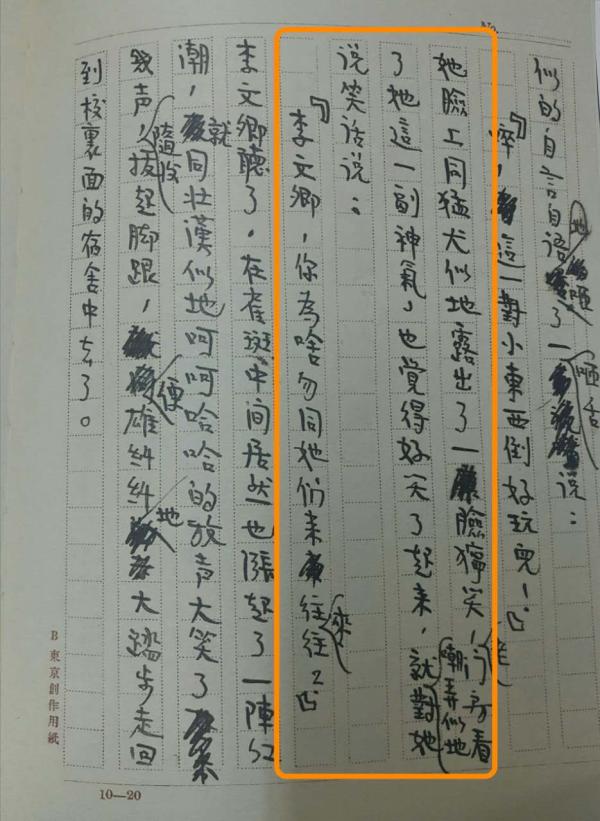 似的自言自语地咂了一咂舌说：
『啐，這一對小東西倒好玩兒！』
她臉上同猛犬似地露出了一臉獰笑，门房看
了她這一副神氣，也覺得好笑了起来，就嘲弄似地對她
说笑话说：
『李文卿，你為啥勿同她们来往来往？』
李文卿聽了，在雀斑中间居然也漲起了一陣红
潮，就同壮漢似地呵呵哈哈的放声大笑了
幾声，随後拔起脚跟，便雄糾糾地大踏步走回
到校裏面的宿舍中去了。
B 東京創作用紙
10—20